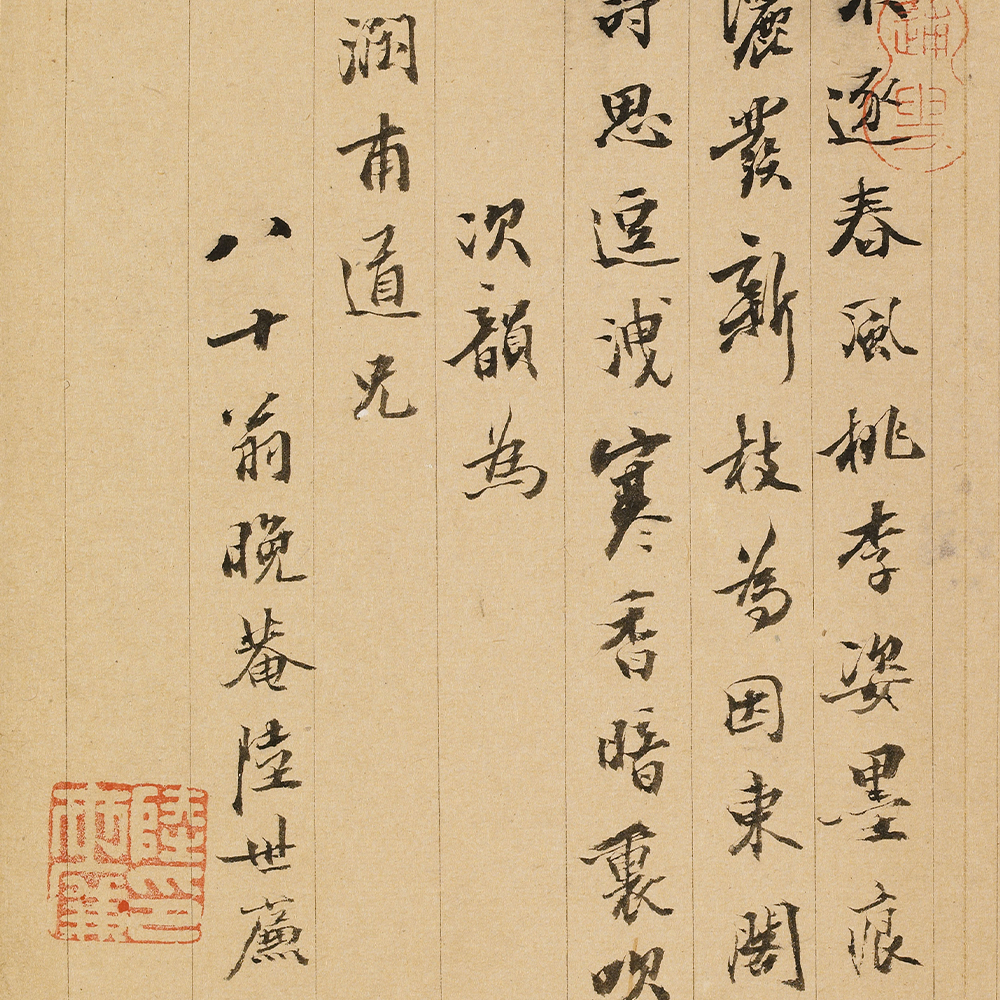 逐春風桃李姿墨痕
灑發新枝為因東閣
詩思逗洩寒香暗裏吹
次韻為
潤甫道兄
八十翁晚菴陸世廉
陸世廉印